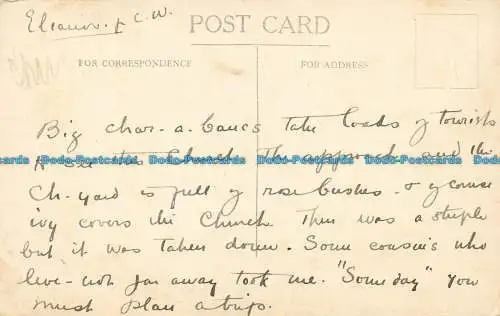 Eleanor. f C.W.
POST CARD
FOR CORRESPONDENCE
FOR ADDRESS
Big char-a-bancs take loads of tourists
to see this Church. The approach and the
Ch-yard is full of rose bushes - & of course
ivy covers the Church. There was a steeple
but it was taken down. Some cousins who
live - not far away took me. "Someday" you
must plan a trip.
Dodo-Postcards Dodo-Postcards Dodo-Postcards Dodo-Postcards Dodo-Postcards